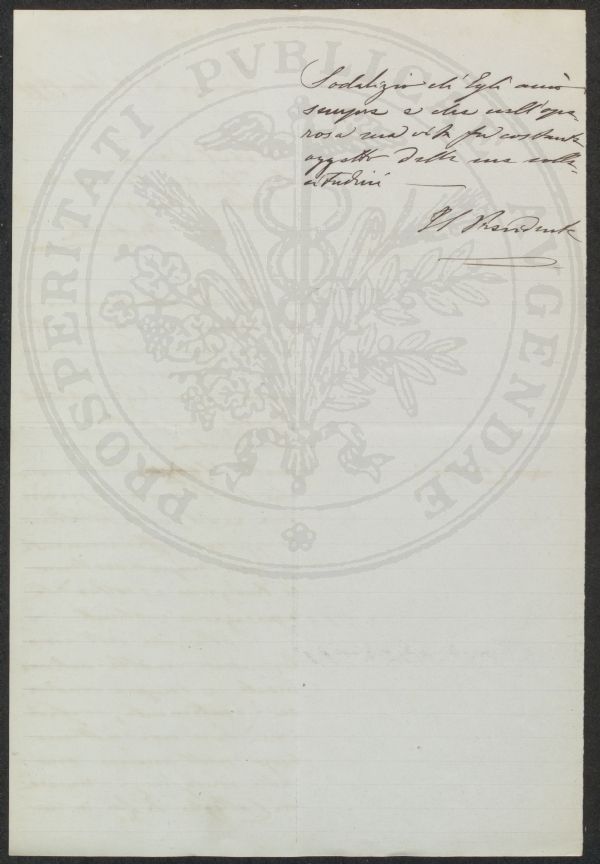 PROSPERITATI PVBLICAE AVGENDAE
Sodalizio ch'Egli amò
sempre e che nell'ope-
rosa sua vita fu costante
oggetto delle sue solle-
citudini
Il Presidente